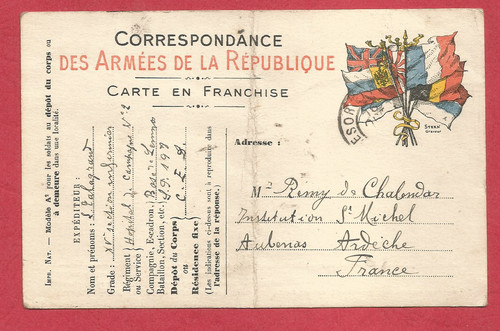 CORRESPONDANCE
DES ARMÉES DE LA RÉPUBLIQUE
CARTE EN FRANCHISE
STERN
Graveur
Adresse :
Mr Remy de Chalendar
Institution St Michel
Aubenas Ardèche
France
Imp. Nat. — Modèle A1 pour les soldats au dépôt du corps ou
à demeure dans une localité.
EXPÉDITEUR :
Nom et prénoms :
Grade : XVe section infirmiers
Régiment Hôpital de Campagne No 2
ou Service)
Compagnie, Escadron, Base de
Bataillon, Section, etc. S.P. 197
Dépôt du Corps)
ou
Résidence fixe)
(Les indications ci-dessus sont à reproduire dans
l'adresse de la réponse.)